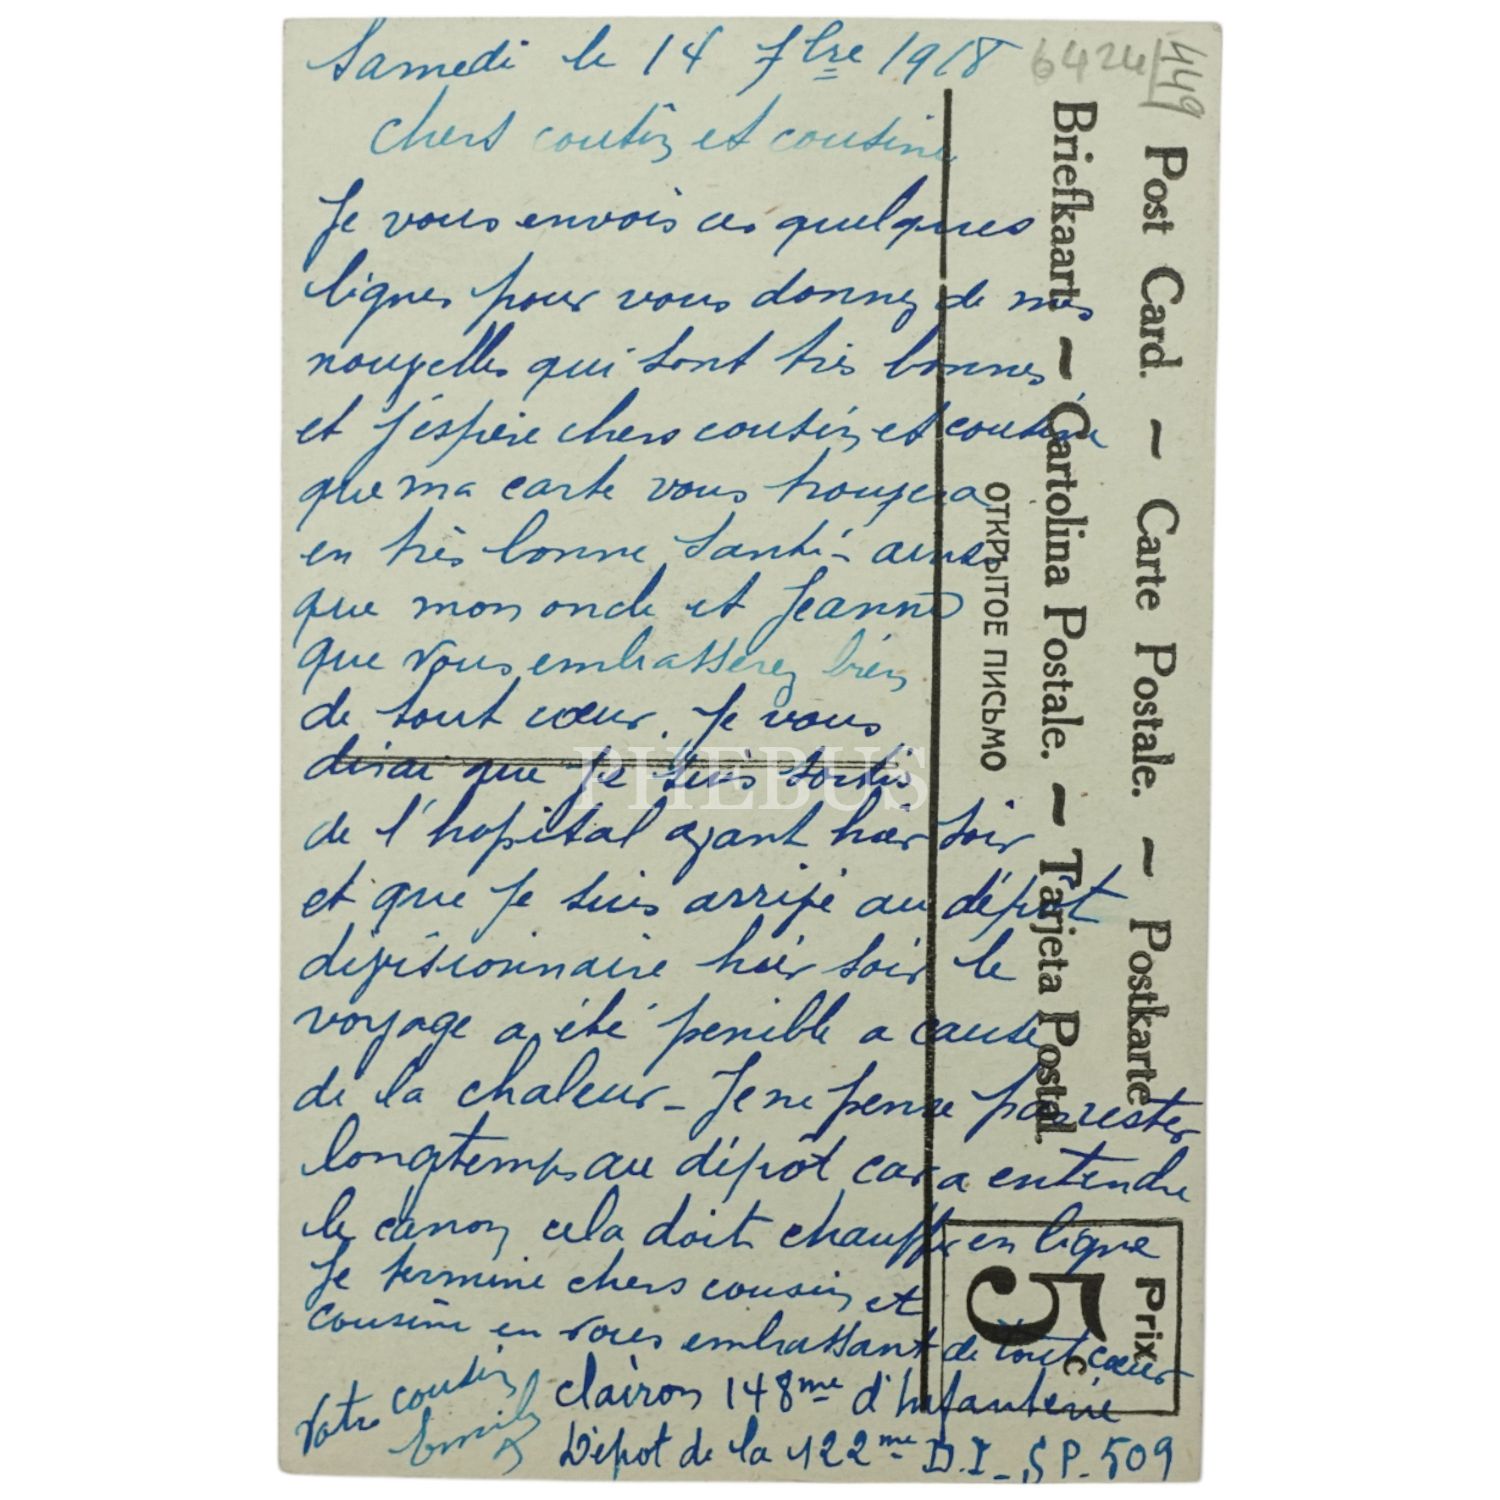 Samedi le 14 7bre 1918
6424
449
chers cousin et cousine
Je vous envois ces quelques
lignes pour vous donnez de mes
nouvelles qui sont très bonnes
et j'éspère chers cousin et cousine
que ma carte vous trouvera
en très bonne santé - ainsi
que mon oncle et Jeanne
que vous embrasserez bien
de tout cœur. Je vous
dirai que je suis sortis
de l'hopital ayant hier soir
et que je suis arrivé au dépôt
divisionnaire hier soir le
voyage a été penible a cause
de la chaleur - Je ne pense pas rester
longtemps au dépôt car a entendre
le canon cela doit chauffer en ligne
Je termine chers cousin et
cousine en vous embrassant de tout cœur
Votre cousin
Emile
clairon 148me d'Infanterie
Dépot de la 122me D.I - SP. 509
Post Card. – Carte Postale. – Postkarte
Briefkaart – Cartolina Postale. – Tarjeta Postal.
ОТКРЫТОЕ ПИСЬМО
Prix
5c
PHEBUS